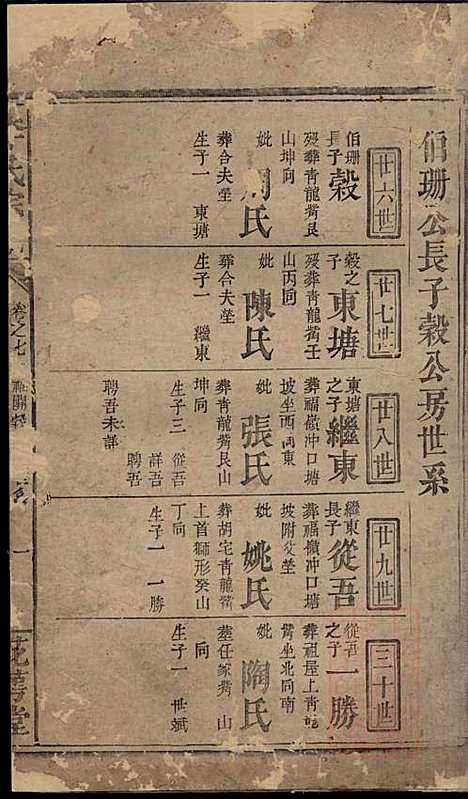 伯珊公長子穀公房世系
廿六世
伯珊長子
穀
歿葬青龍嘴艮
山坤向
妣
周氏
葬合夫塋
生子一 東塘
廿七世
穀之子
東塘
歿葬青龍嘴壬
山丙向
妣
陳氏
葬合夫塋
生子一 繼東
廿八世
東塘之子
繼東
葬福嶺冲口塘
坡坐西向東
妣
張氏
葬青龍嘴艮山
坤向
生子三 從吾
詳吾
聘吾
聘吾未詳
廿九世
繼東長子
從吾
葬福嶺冲口塘
坡附父塋
妣
姚氏
葬胡宅青龍嘴
上首獅形癸山
丁向
生子一 一勝
三十世
從吾之子
一勝
葬祖屋上青龍
嘴坐北向南
妣
陶氏
葬任家嘴 山
向
生子一 世斌
氏宗
卷之七
一